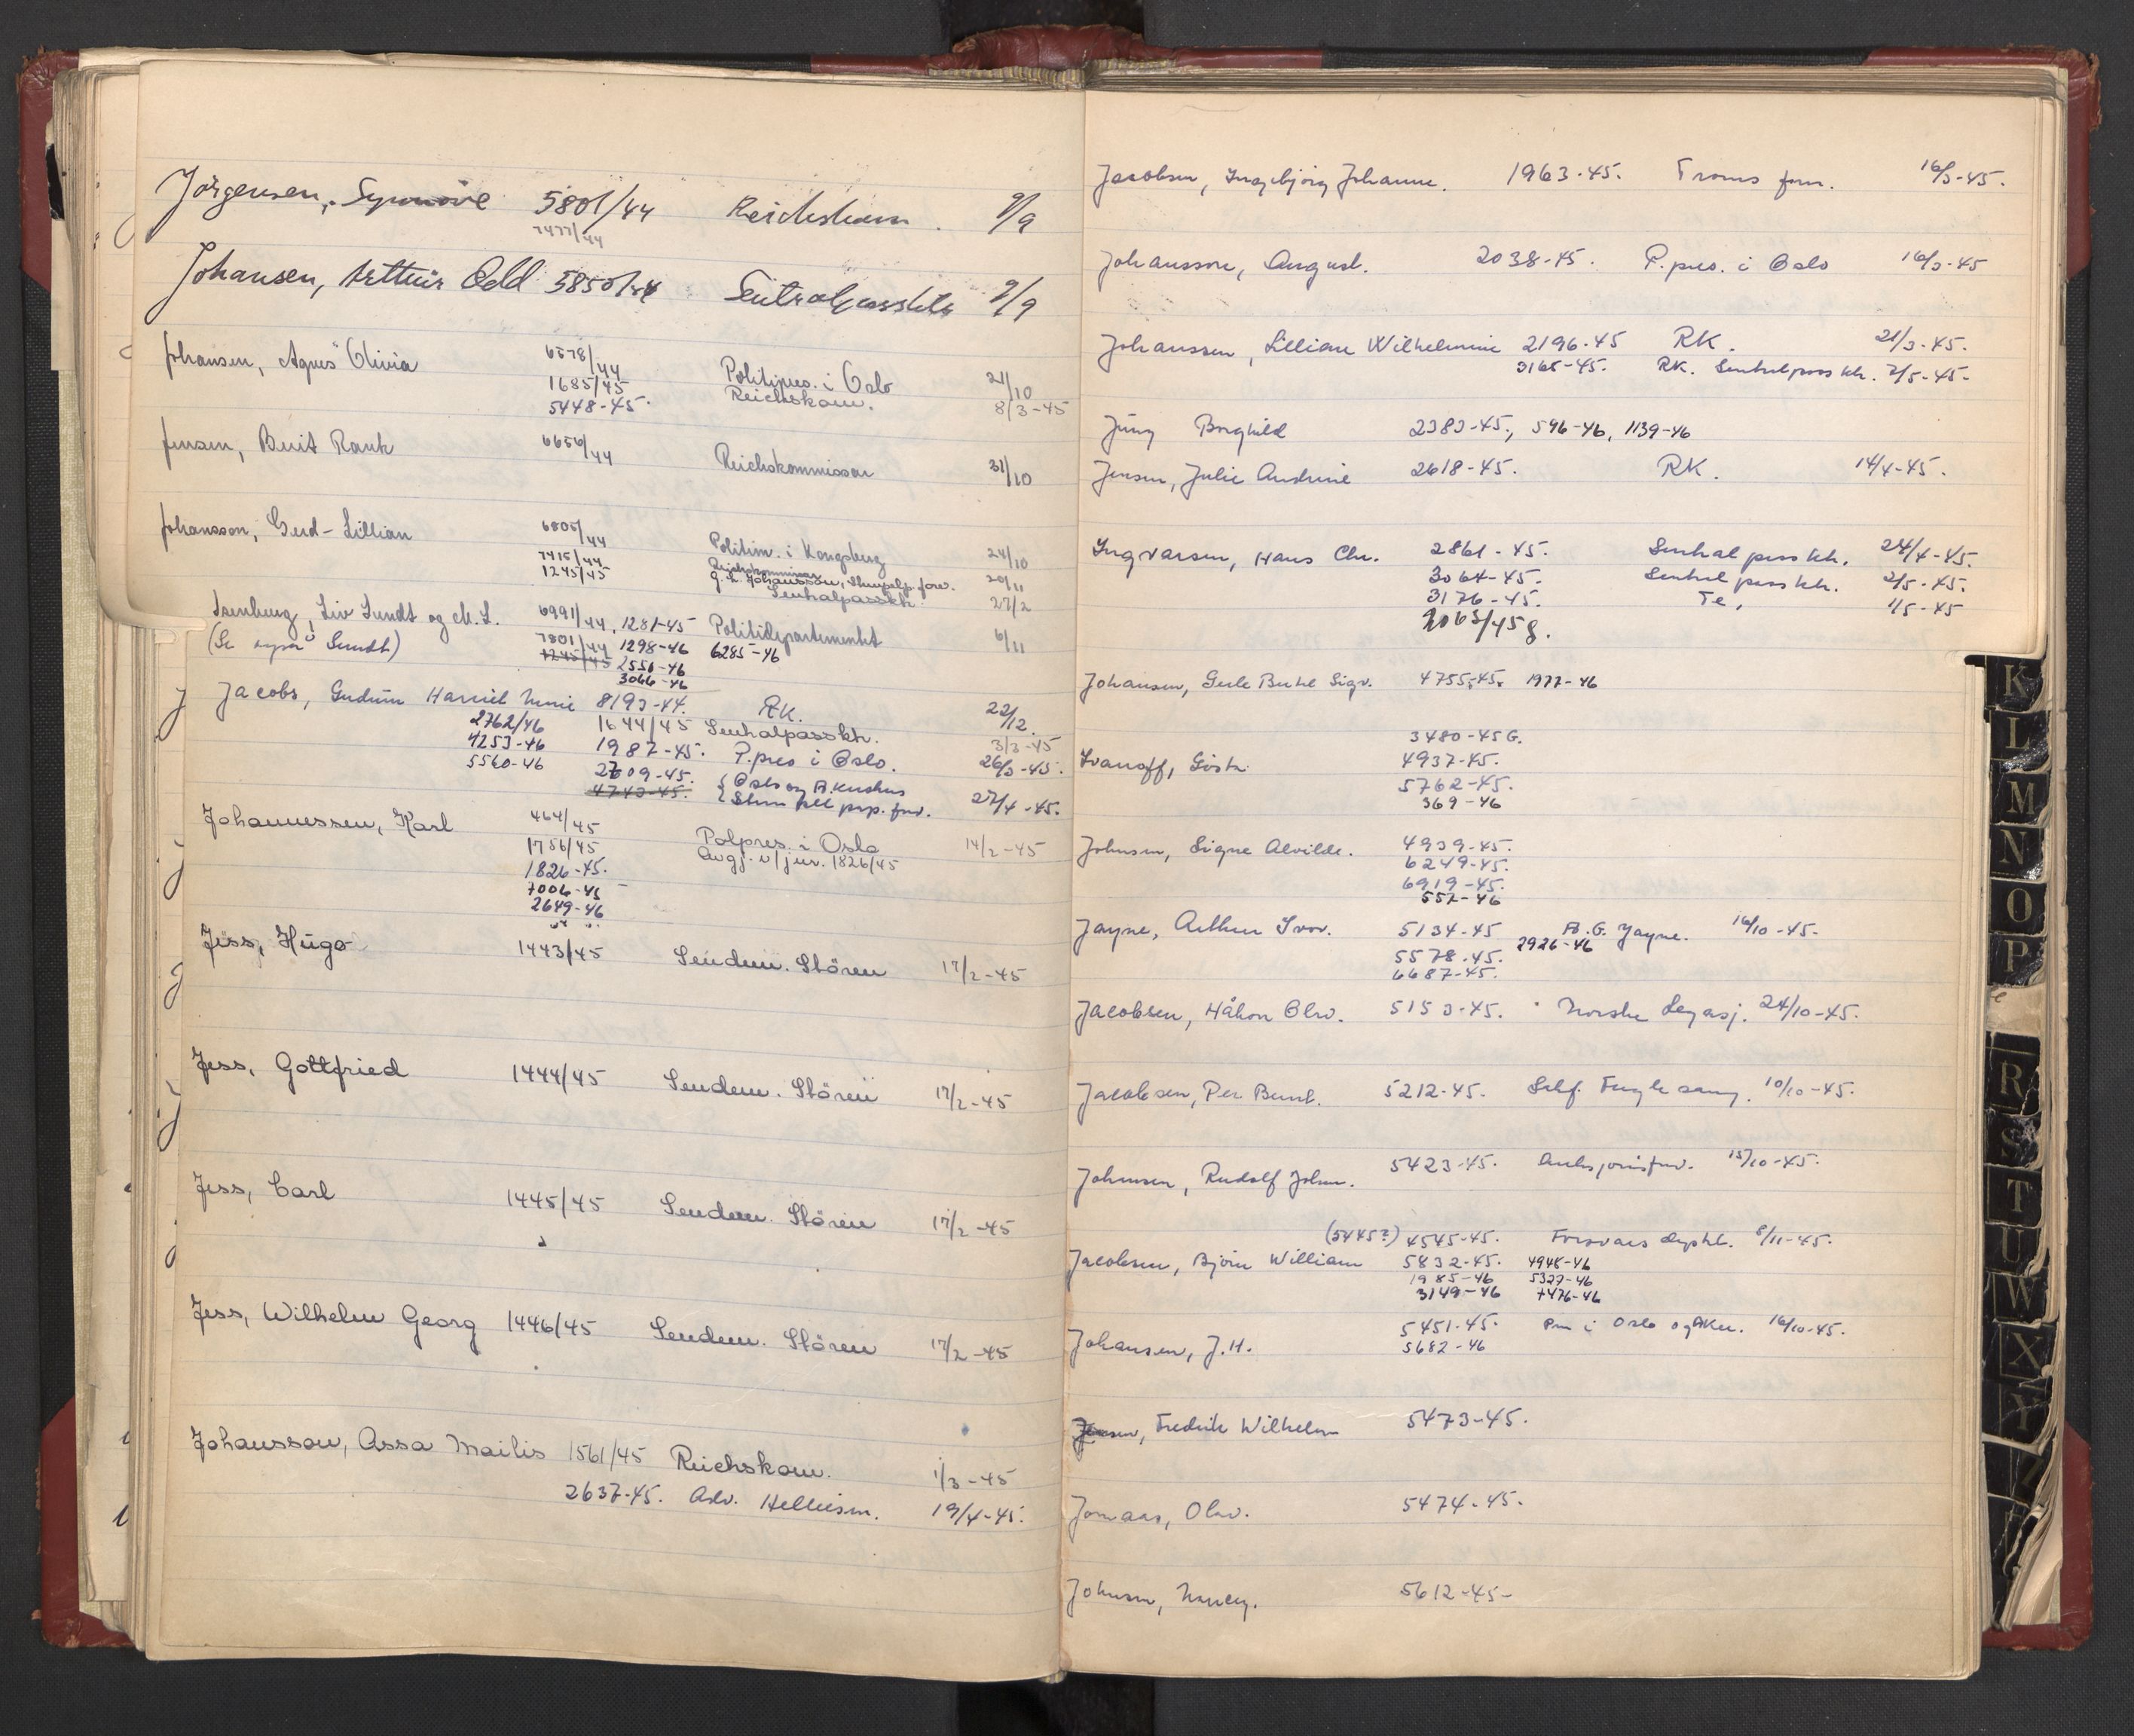 Jörgensen, Synnöve 5801/44 Reichskom. 9/9
7477/44
Johansen, Arthur Odd 5850/44 Sentralpasskto 9/9
Johansen, Agnes Olivia 6578/44 Politipres. i Oslo 21/10
1685/45 Reichskom. 8/3-45
5448-45.
Jensen, Berit Rank 6656/44 Reichskommissar 31/10
Johansson, Gerd-Lillian 6805/44 Politim. i Kongsberg 24/10
7415/44 Reichskommissar 20/11
1245/45 Sentralpasskt. 27/2
Isenburg, Liv Sundt og M. L. 6991/44, 1281-45 Politidepartementet 6/11
(Se også Sundt) 7801/44 1298-46 6285-46
1245/45 2556-46
3066-46
Jacobs, Gudrun Harriet 8193-44. RK. 22/12.
2762/46 1644/45 Sentralpasskt. 3/3-45
4253-46 1987-45. P.pres i Oslo. 26/3-45.
5560-46 2709-45. Oslo og A.kushus
4743-45. 27/4-45.
Johannessen, Karl 464/45 Polpres. i Oslo 14/2-45
1756/45 Avgj. v/jur. 1826/45
1826-45.
7006-45
2649-46
Jess, Hugo 1443/45 Lendsm. Stören 17/2-45
Jess, Gottfried 1444/45 Lendsm. Stören 17/2-45
Jess, Carl 1445/45 Lendsm. Stören 17/2-45
Jess, Wilhelm Georg 1446/45 Lendsm. Stören 17/2-45
Johansson, Assa Mailis 1561/45 Reichskom. 1/3-45
2637-45. Adv. Helliesen. 19/4-45.
Jacobsen, Ingebjörg Johanne. 1963-45. Troms 16/3-45.
Johansson, August. 2038-45. P.pres. i Oslo 16/3-45
Johansson, Lillian Wilhelmine 2196-45 RK. 21/3-45.
3165-45. RK. Sentralpasskt. 2/5-45-
Jüng Borghild 2383-45., 596-46, 1139-46
Jensen, Julie Andrine 2618-45. RK. 14/4-45.
Ingvarsen, Hans Chr. 2861-45. Sentralpasskt. 24/4-45.
3064-45. Sentralpasskt. 2/5-45.
3176-45. Te, 1/5-45
2063/45 g.
Johansen, Gerle Buhl Sigv. 4755-45. 1977-46
3480-45G.
Ivanoff, Gösta 4937-45.
5762-45.
369-46
Johnsen, Signe Alvilde. 4939-45.
6249-45.
6919-45.
557-46
Jayne, Arthur Ivor. 5134-45 B.G. Jayne. 16/10-45.
5578-45. 2926-46
6687-45.
Jacobsen, Håkon Olav. 5153-45. Norske Legasj. 24/10-45.
Jacobsen, Per Bernt. 5212-45. Self. Fuglesang. 10/10-45.
Johnsen, Rudolf Johan. 5423-45. 15/10-45.
(5445?) 4545-45. Forsvars dept. 8/11-45.
Jacobsen, Björn William 5832-45. 4948-46
1985-46 5327-46
3149-46 7476-46
Johansen, J.H. 5451-45. Pm i Oslo og Aker. 16/10-45.
5682-46
Jensen, Fredrik Wilhelm 5473-45.
Jomaas, Olav. 5474-45.
Johnsen, Nancy. 5612-45-
K
L
M
N
O
P
R
S
T
U
W
X
Y